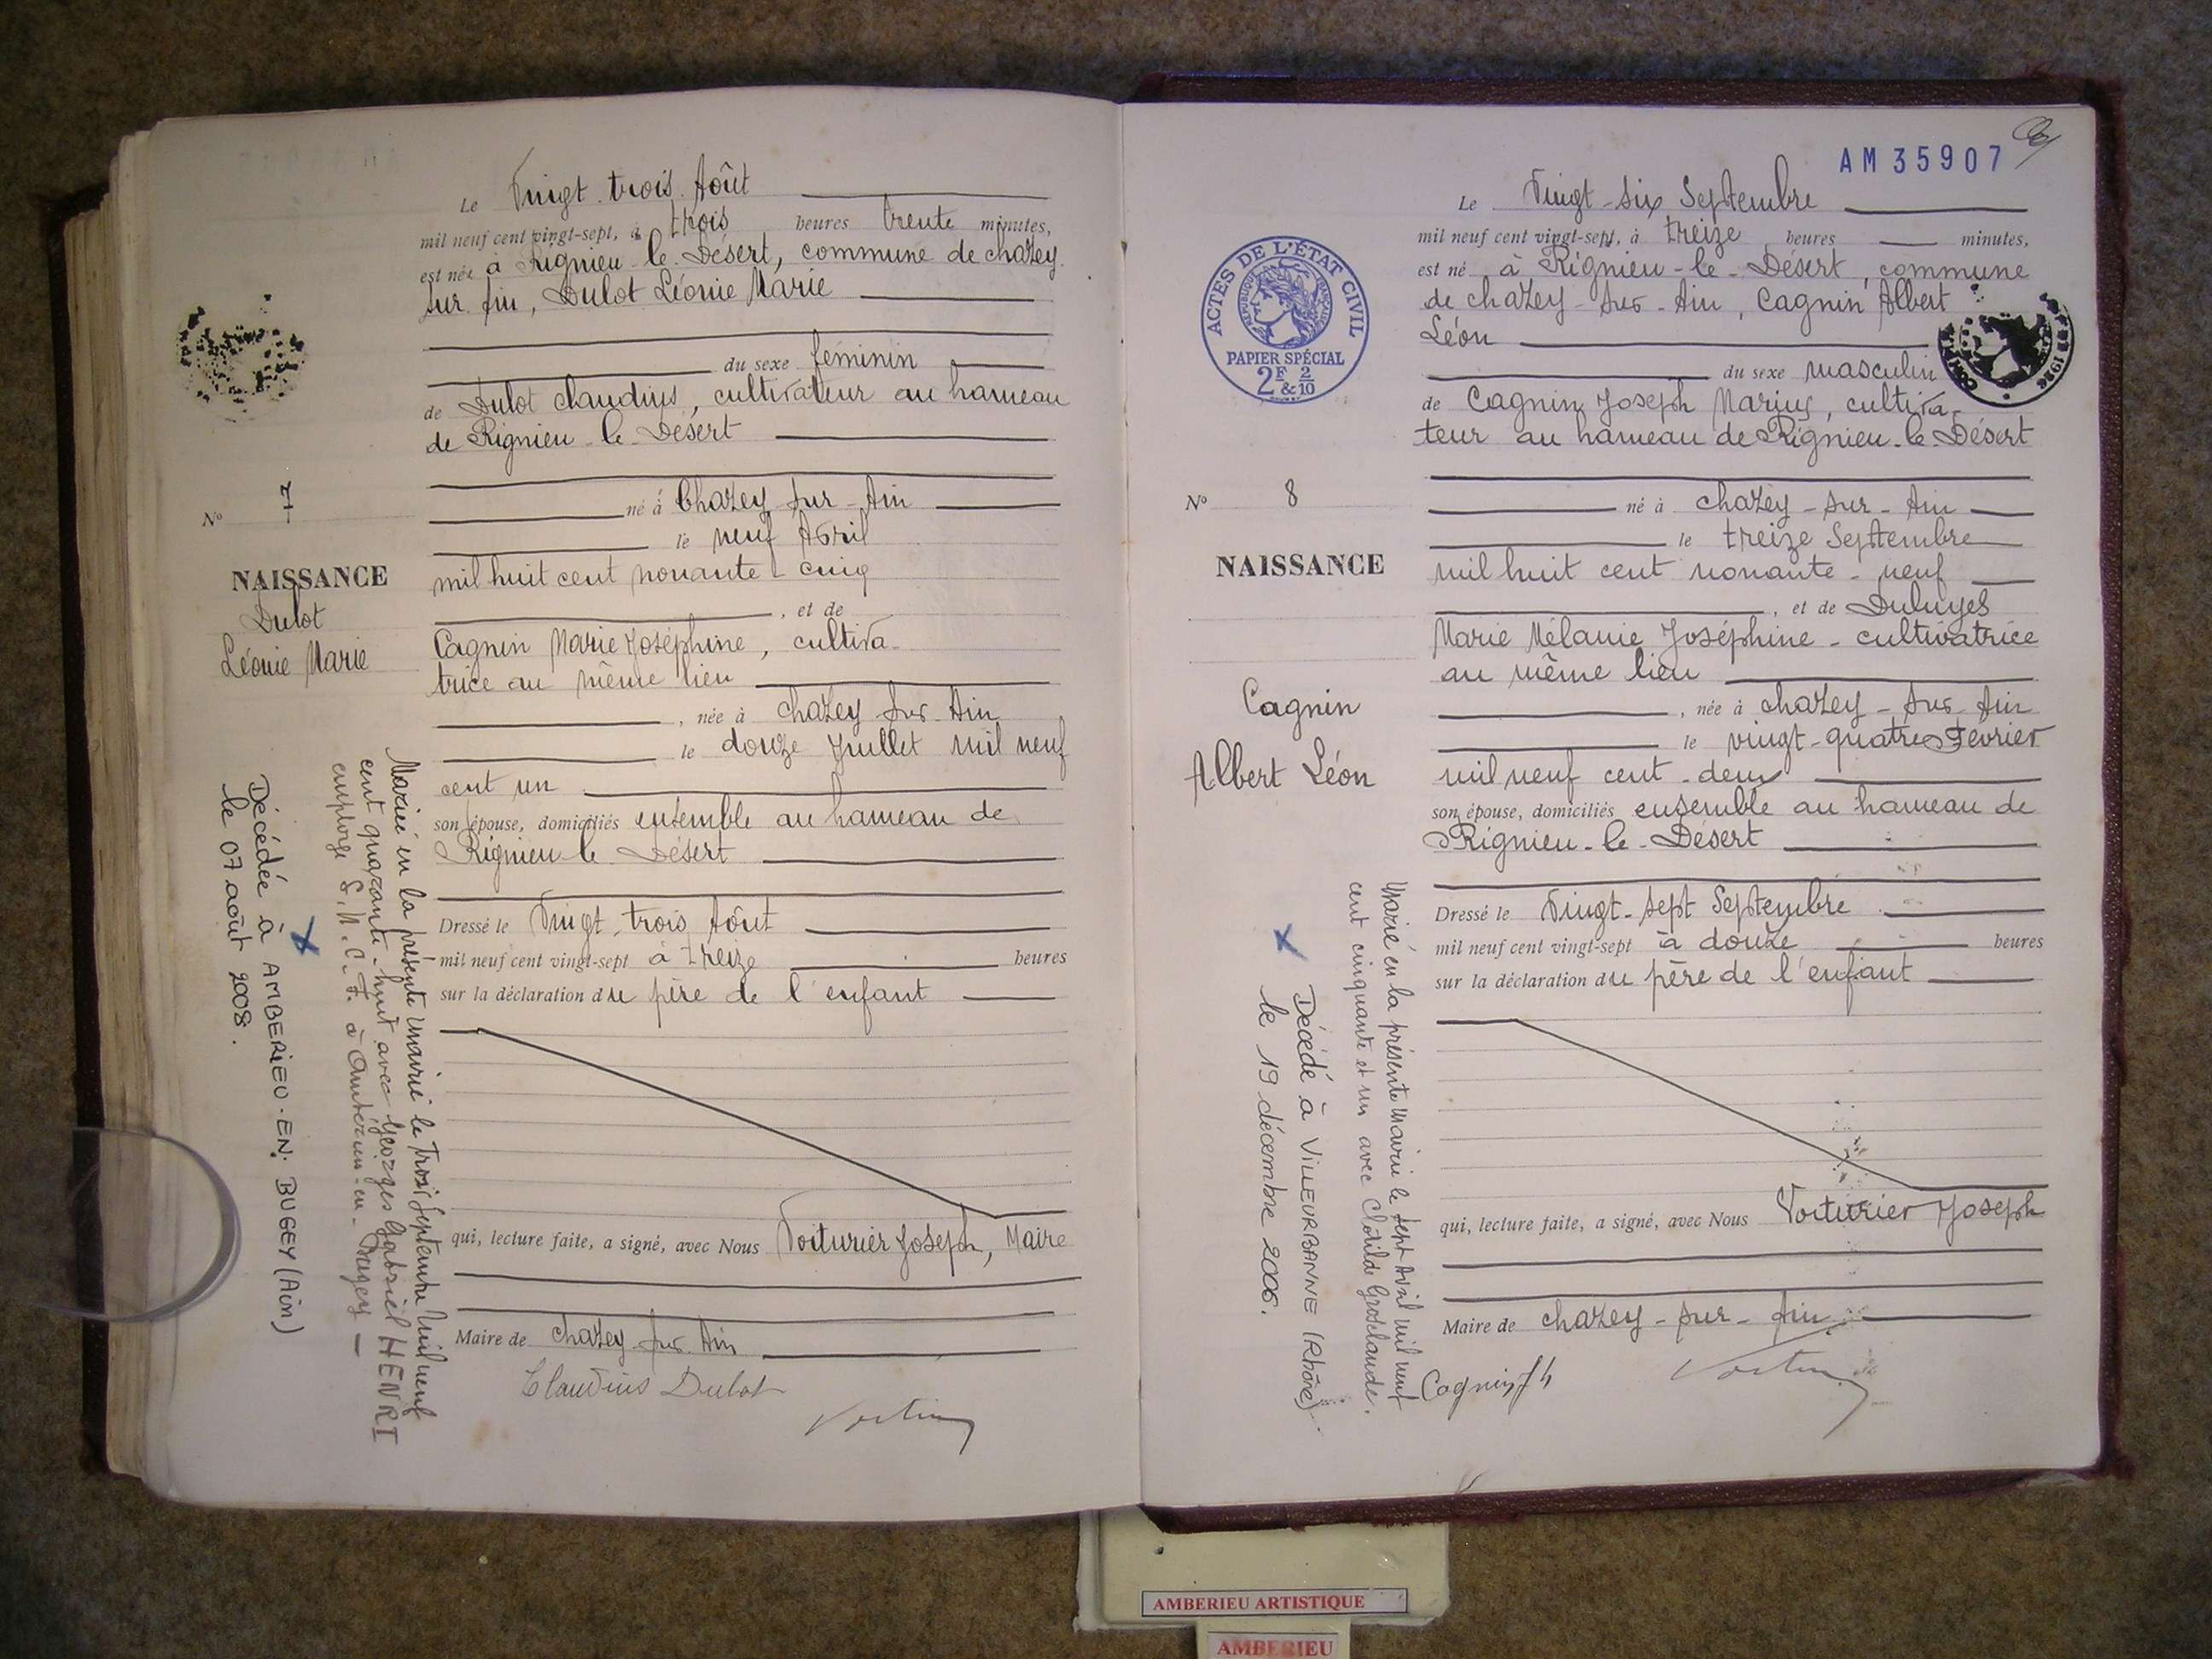 Le Vingt-trois Août
mil neuf cent vingt-sept, à trois heures trente minutes,
est née à Rignieu-le-Désert, commune de chazey
sur Ain, Dulot Léonie Marie
du sexe féminin
de Dulot Claudius, cultivateur au hameau
de Rignieu-le-Désert
né à Chazey sur-Ain
le neuf Avril
mil huit cent nonante-cinq
, et de
Cagnin Marie Joséphine, cultiva-
trice au même lieu
, née à chazey sur-Ain
le douze Juillet mil neuf
cent un
son épouse, domiciliés ensemble au hameau de
Rignieu-le-Désert
Dressé le Vingt-trois Août
mil neuf cent vingt-sept à treize heures
sur la déclaration du père de l'enfant
qui, lecture faite, a signé, avec Nous Voiturier Joseph, Maire
Maire de chazey-sur-Ain
Claudius Dulot
N° 7
NAISSANCE
Dulot
Léonie Marie
Mariée en la présente mairie le trois Septembre mil neuf
cent quarante-huit avec Georges Gabriel HENRI
employé S.N.C.F. à Ambérieu-en-Bugey
Décédée à AMBERIEU-EN-BUGEY (Ain)
le 07 août 2008.
AM 35907
ACTES DE L'ÉTAT CIVIL
RÉPUBLIQUE FRANÇAISE
PAPIER SPÉCIAL
2F & 2/10
Le Vingt-six Septembre
mil neuf cent vingt-sept, à treize heures minutes,
est né à Rignieu-le-Désert, commune
de chazey-sur-Ain, Cagnin Albert
Léon
du sexe masculin
de Cagnin Joseph Marius, cultiva-
teur au hameau de Rignieu-le-Désert
né à chazey-sur-Ain
le treize Septembre
mil huit cent nonante-neuf
, et de Duluyes
Marie Mélanie Joséphine-cultivatrice
au même lieu
, née à chazey-sur-Ain
le vingt-quatre Février
mil neuf cent-deux
son épouse, domiciliés ensemble au hameau de
Rignieu-le-Désert
Dressé le Vingt-sept Septembre
mil neuf cent vingt-sept à douze heures
sur la déclaration du père de l'enfant
qui, lecture faite, a signé, avec Nous Voiturier Joseph
Maire de chazey-sur-Ain
Cagnin
N° 8
NAISSANCE
Cagnin
Albert Léon
Marié en la présente mairie le sept Avril mil neuf
cent cinquante et un avec Clotilde Groslaude.
Décédé à VILLEURBANNE (Rhône)
le 19 décembre 2006.
AMBERIEU ARTISTIQUE
AMBERIEU